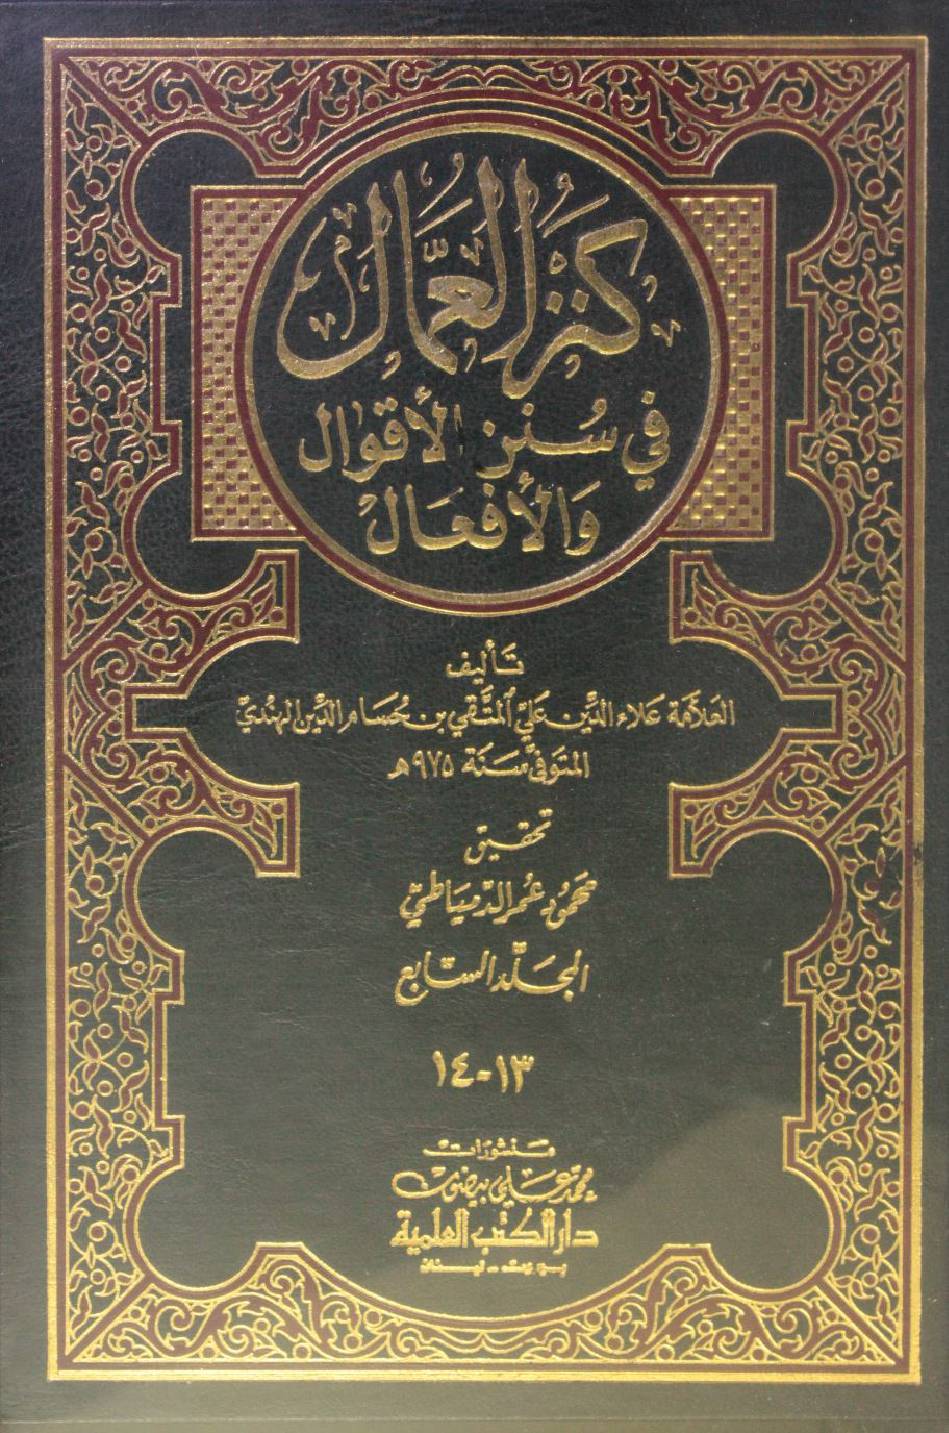 كنز العمال
في سنن الأقوال
والأفعال
تأليف
العلامة علاء الدين علي المتقي بن حسام الدين الهندي
المتوفى سنة ٩٧٥ هـ
تحقيق
محمود عمر الدمياطي
المجلد السابع
١٣-١٤
منشورات
محمد علي بيضون
دار الكتب العلمية
بيروت - لبنان